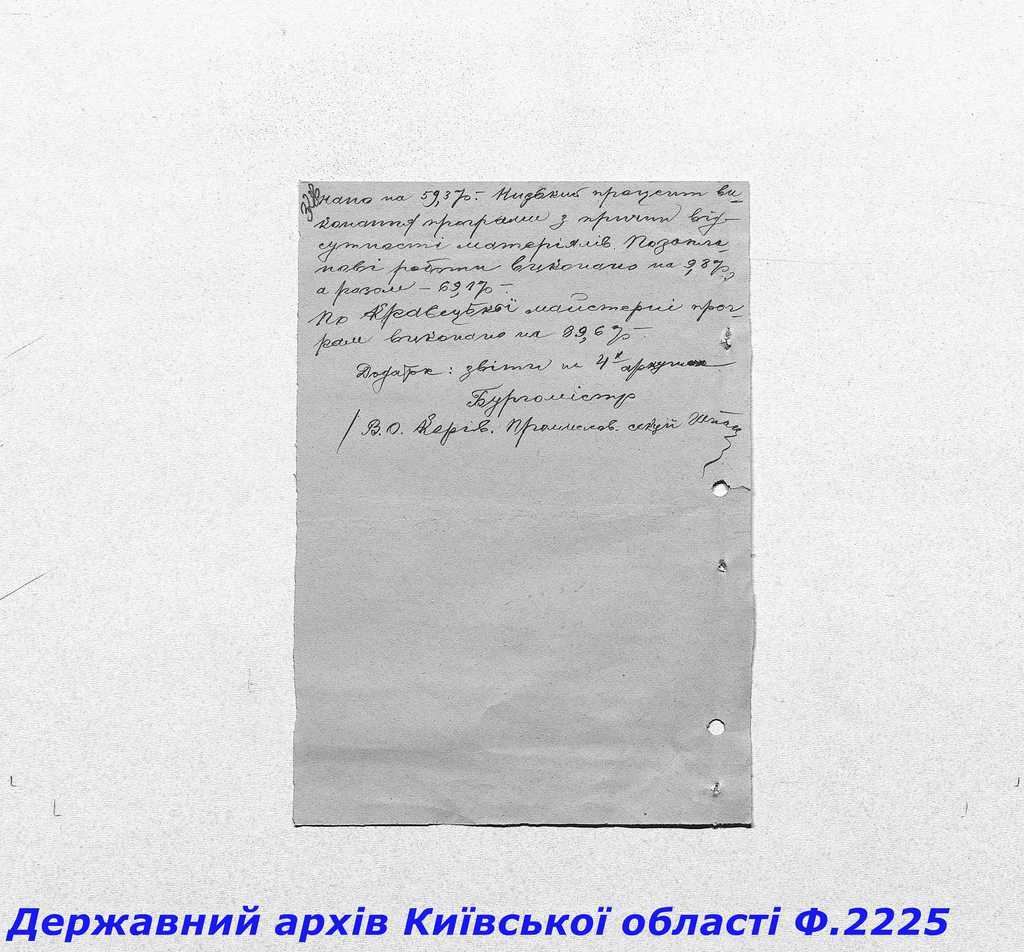 чано на 59,3%. Низький процент ви-
конання програми з причин від-
сутності матеріялів. Позапла-
нові роботи виконано на 9,8%,
а разом – 69,1%.
По Кравецькій майстерні прог-
рам виконано на 99,6%.
Додаток: звіти на 4х аркушах
Бургомістр
/В.О. Керів. Промислов. секції
Державний архів Київської області Ф.2225